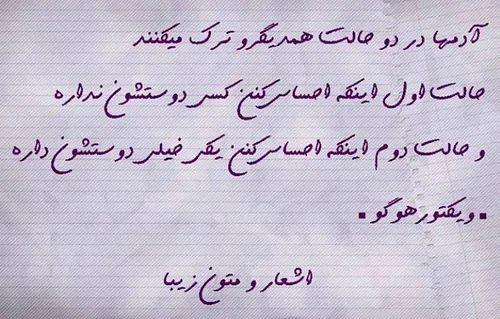 آدمها در دو حالت همدیگرو ترک میکنند
حالت اول اینکه احساس کنن کسی دوستشون نداره
و حالت دوم اینکه احساس کنن یکی خیلی دوستشون داره
▪ ویکتور هوگو ▪
اشعار و متون زیبا